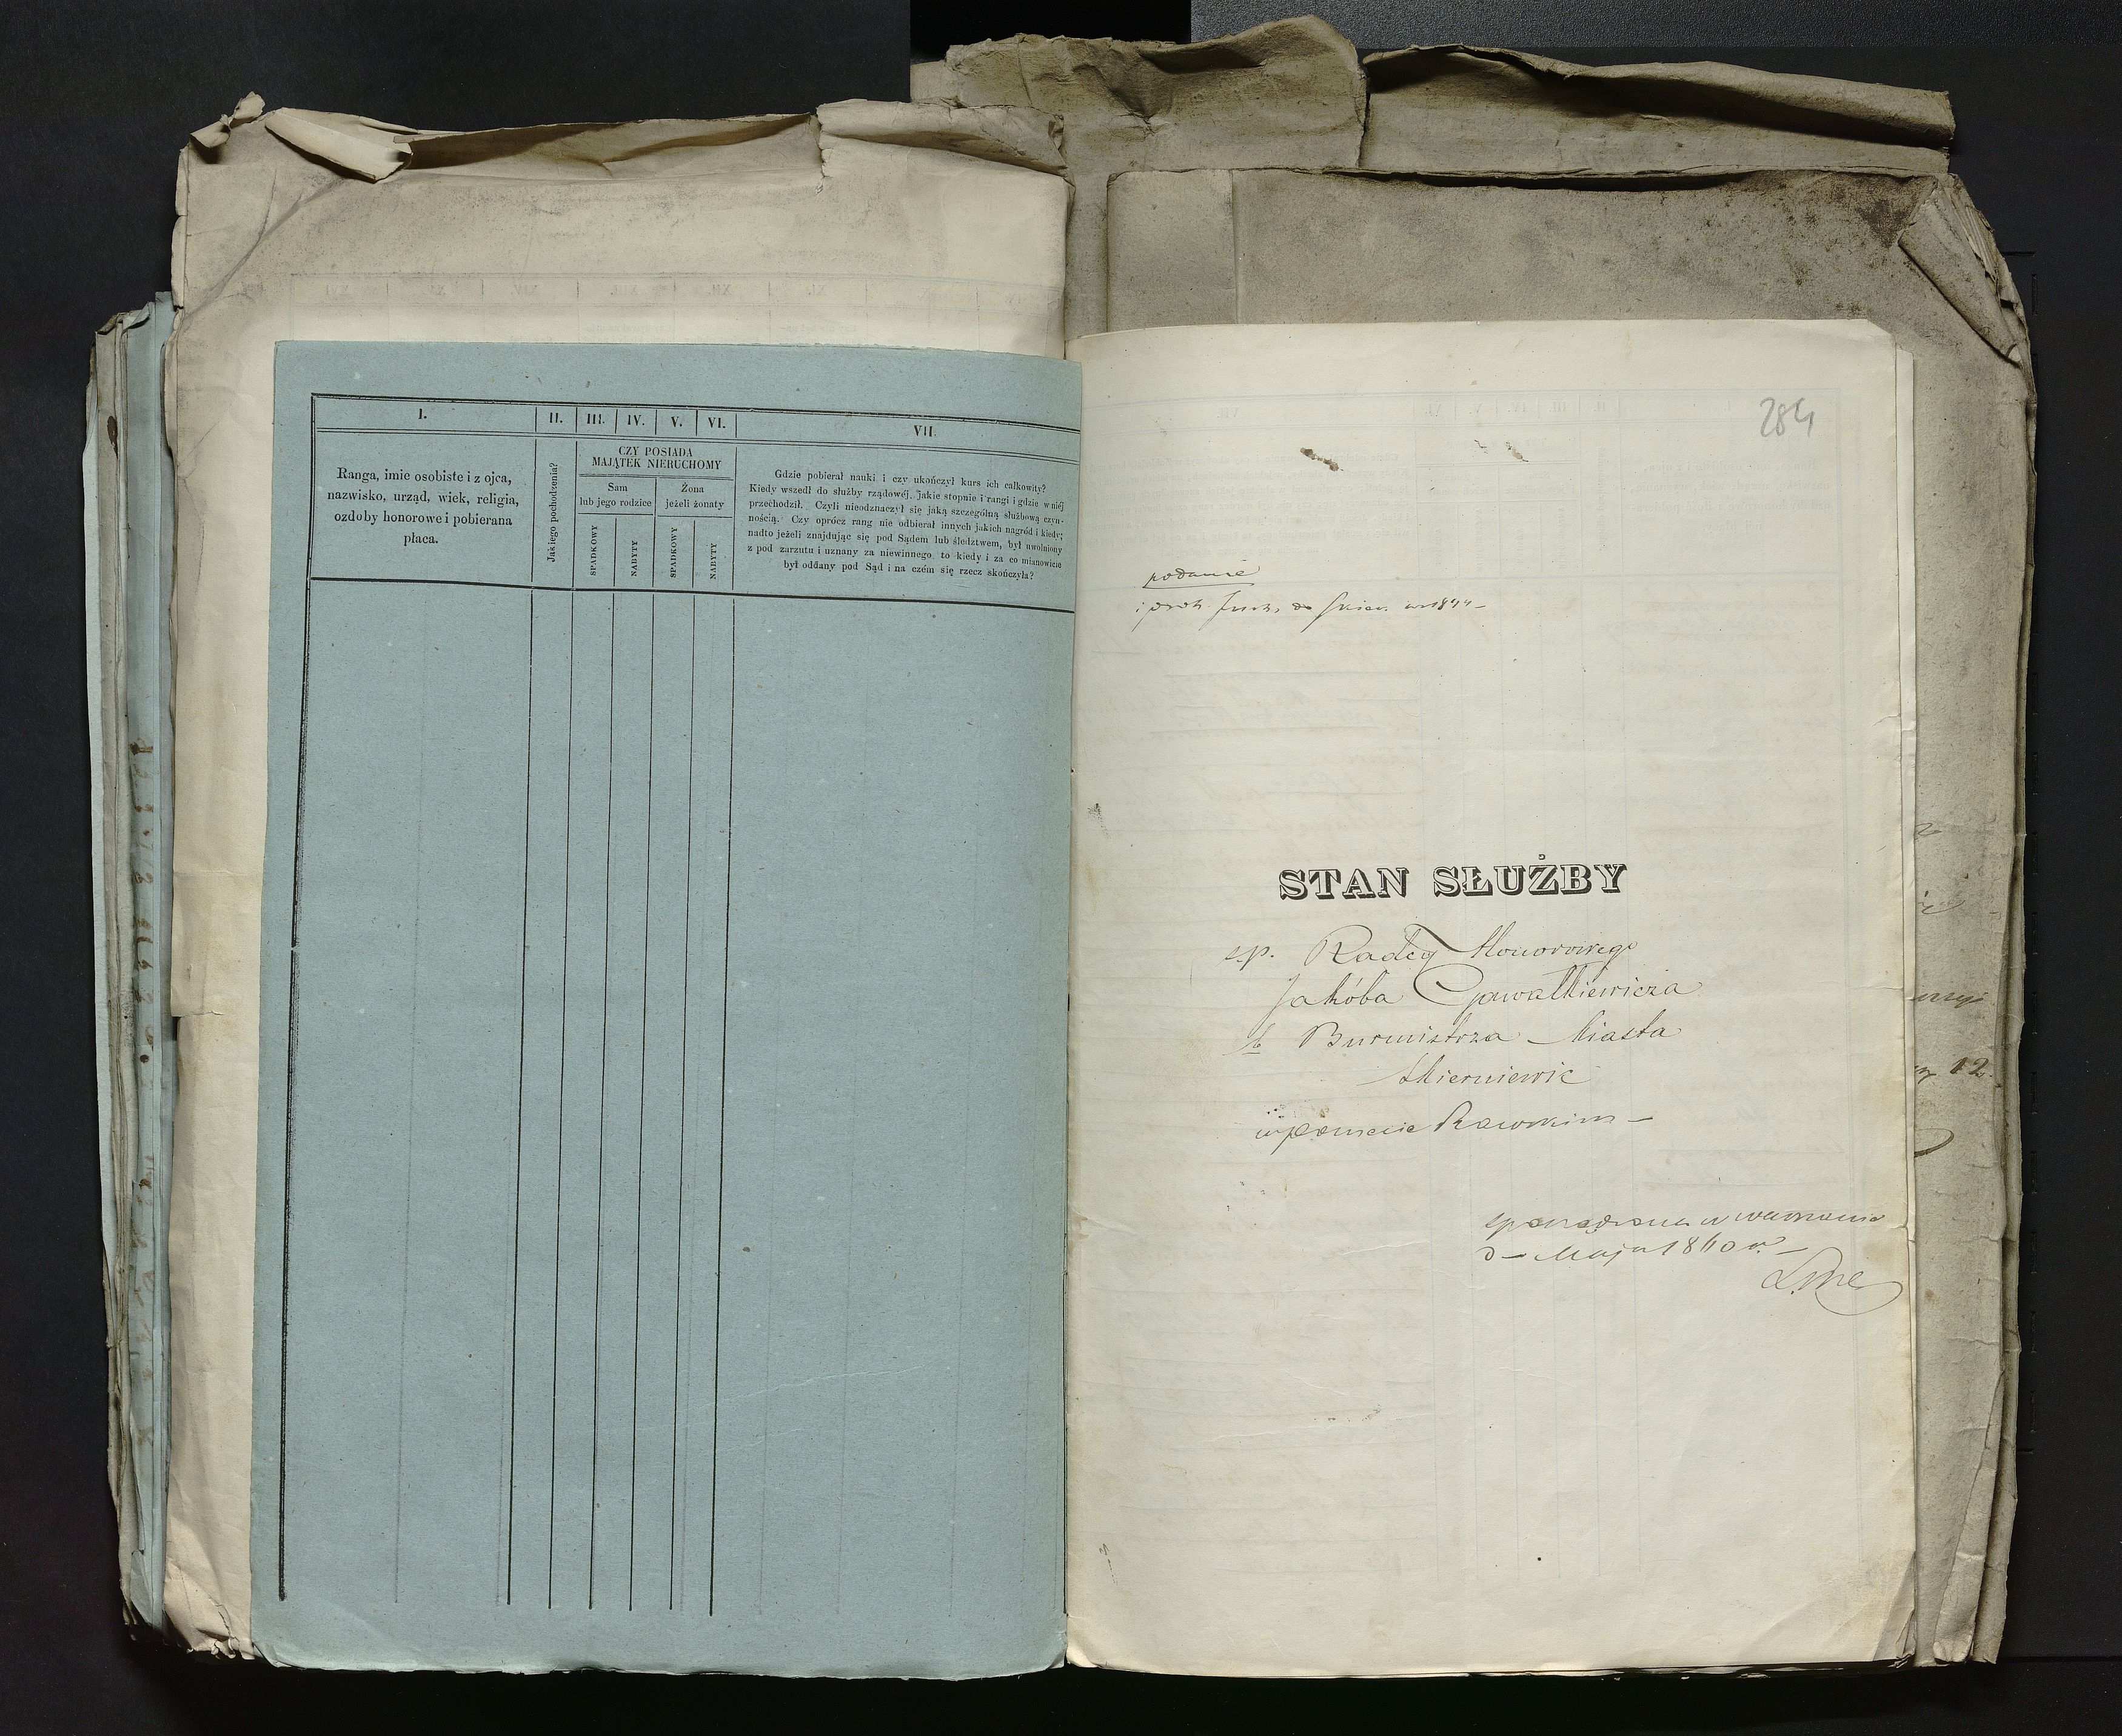 I.
II.
III.
IV.
V.
VI.
VII.
Ranga, imie osobiste i z ojca,
nazwisko, urząd, wiek, religia,
ozdoby honorowe i pobierana
płaca.
Jakiego pochodzenia?
CZY POSIADA
MAJĄTEK NIERUCHOMY
Sam
lub jego rodzice
Żona
jeżeli żonaty
SPADKOWY
NABYTY
SPADKOWY
NABYTY
Gdzie pobierał nauki i czy ukończył kurs ich całkowity?
Kiedy wszedł do służby rządowéj, jakie stopnie i rangi i gdzie w niéj
przechodził. Czyli nieodznaczył się jaką szczególną służbową czyn-
nością. Czy oprócz rang nie odbierał innych jakich nagród i kiedy;
nadto jeżeli znajdując się pod Sądem lub śledztwem, był uwolniony
z pod zarzutu i uznany za niewinnego to kiedy i za co mianowicie
był oddany pod Sąd i na czém się rzecz skończyła?
284
podanie
STAN SŁUŻBY
Radcy Honorowego
Jakóba Gawałkiewicza
b Burmistrza Miasta
Skierniewic
w powiecie Rawskim –
Maja 1860 r. –
12